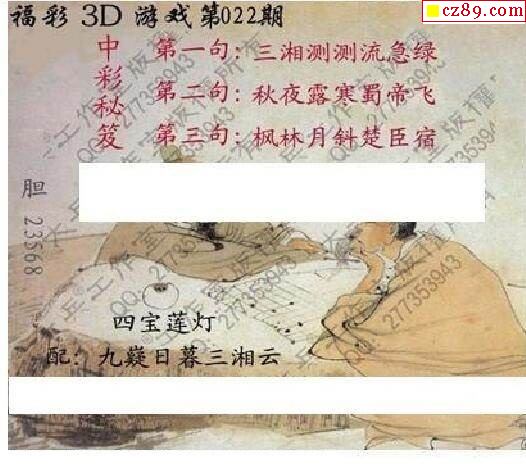 福彩 3D 游戏第022期
cz89.com
中彩秘笈
第一句：三湘测测流急绿
第二句：秋夜露寒蜀帝飞
第三句：枫林月斜楚臣宿
胆 23568
四宝莲灯
配：九嶷日暮三湘云
QQ:277353943
QQ:277353943
QQ:277353943